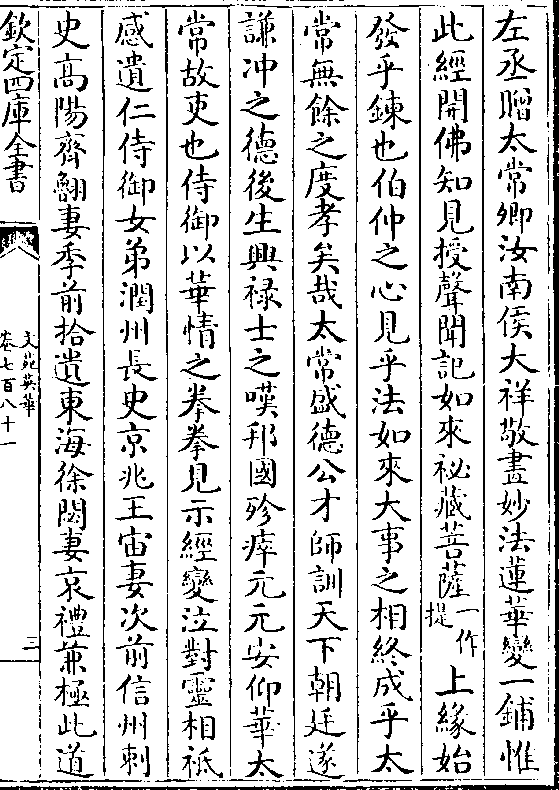 左丞贈太常卿汝南侯大祥敬畫妙法蓮華變一鋪惟
此經開佛知見授聲聞記如來祕藏菩薩一作提上緣始
發乎鍊也伯仲之心見乎法如來大事之相終成乎太
常無餘之度孝矣哉太常盛德公才師訓天下朝廷遂
謙沖之德後生興禄士之嘆邦國殄瘁元元安仰華太
常故吏也侍御以華情之拳拳見示經變泣對靈相祗
感遺仁侍御女弟潤州長史京兆王宙妻次前信州刺
史高陽齊翻妻季前拾遺東海徐閎妻哀禮兼極此道
欽定四庫全書
文苑英華
卷七百八十一
三